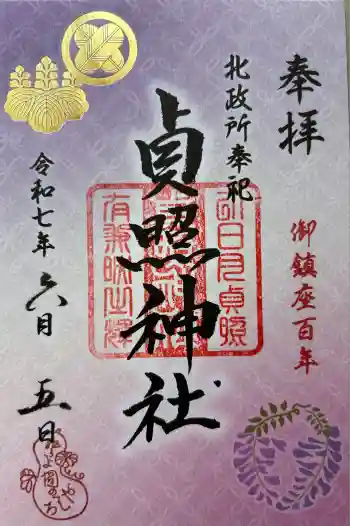 奉拝
御鎮座百年
北政所奉祀
貞照神社
令和七年六月五日